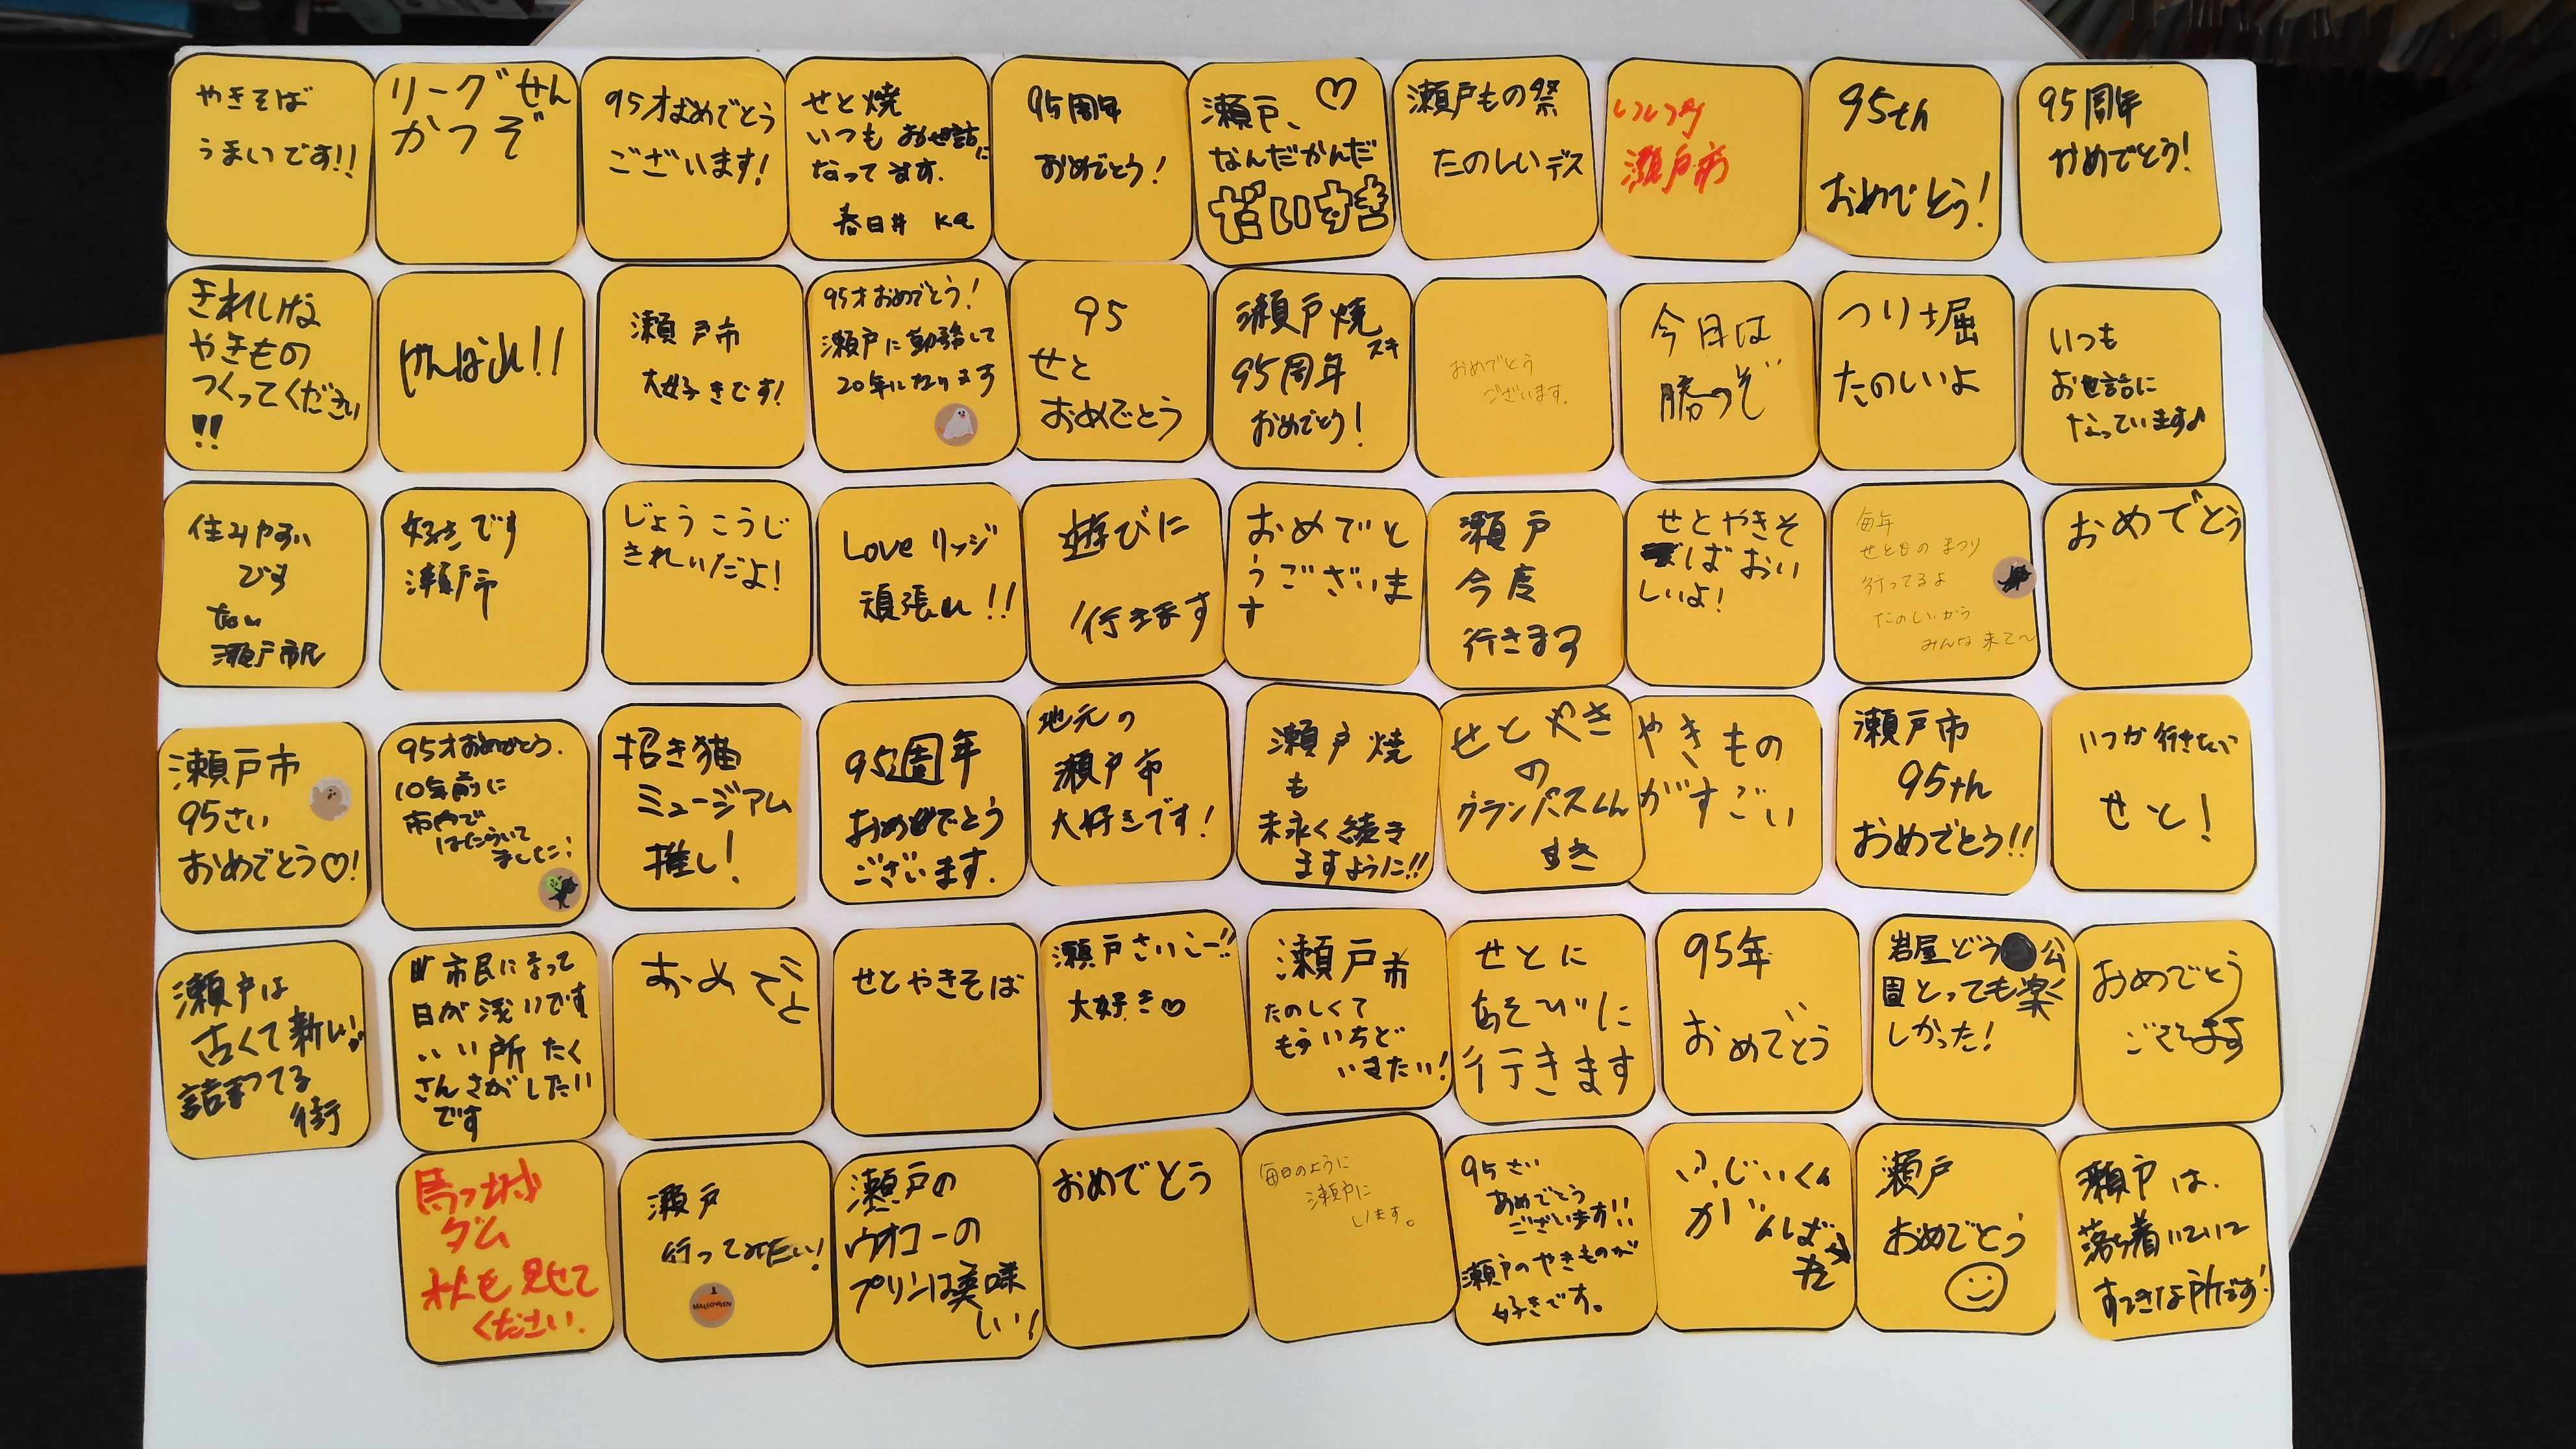 やきそば
うまいです!!
リーグせん
かつぞ
95才おめでとう
ございます!
せと焼
いつも お世話に
なってます.
春日井 KQ
95周年
おめでとう!
瀬戸、♡
なんだかんだ
だいすき
瀬戸もの祭
たのしいデス
いいっすy
瀬戸市
95th
おめでとう!
95周年
おめでとう!
きれいな
やきもの
つくってください
!!
がんばれ!!
瀬戸市
大好きです!
95才おめでとう!
瀬戸に勤務して
20年になります
95
せと
おめでとう
瀬戸焼
スキ
95周年
おめでとう!
おめでとう
ございます.
今日は
勝つぞ
つり堀
たのしいよ
いつも
お世話に
なっています♪
住みやすい
です
瀬戸市民
好きです
瀬戸市
じょうこうじ
きれいだよ!
Love リッジ
頑張れ!!
遊びに
行きます
おめでと
うございま
す
瀬戸
今度
行きます
せとやきそ
ばおい
しいよ!
毎年
せとものまつり
行ってるよ
たのしいから
みんな来て〜
おめでとう
瀬戸市
95さい
おめでとう♡!
95才おめでとう.
10年前に
市内で
はたらいて
ました!
招き猫
ミュージアム
推し!
95周年
おめでとう
ございます.
地元の
瀬戸市
大好きです!
瀬戸焼
も
末永く続き
ますように!!
せとやき
の
グランパスくん
すき
やきもの
がすごい
瀬戸市
95th
おめでとう!!
いつか行きたい
せと!
瀬戸は
古くて新しい!が
詰まってる
街
市民になって
日が浅いです
いい所たく
さんさがしたい
です
おめでと
せとやきそば
瀬戸さいこー!!
大好き♡
瀬戸市
たのしくて
もういちど
いきたい!
せとに
あそびに
行きます
95年
おめでとう
岩屋どう公
園とっても楽
しかった!
おめでとう
ございます
馬ヶ城
ダム
を見せて
ください.
瀬戸
行ってみたい!
HALLOWEEN
瀬戸の
ウオコーの
プリンは美味
しい!
おめでとう
毎日のように
瀬戸に
います。
95さい
おめでとう
ございます!!
瀬戸のやきものが
好きです。
ふじいくん
がんばっ
瀬戸
おめでとう
瀬戸は、
落ち着いていて
すてきな所です!